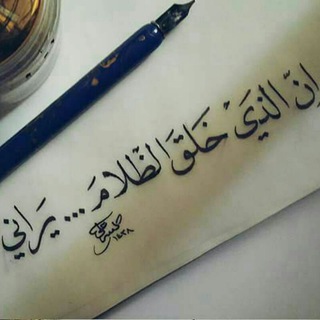 إنّ الذي خَلَقَ الظلامَ ... يَراني
١٤٣٨